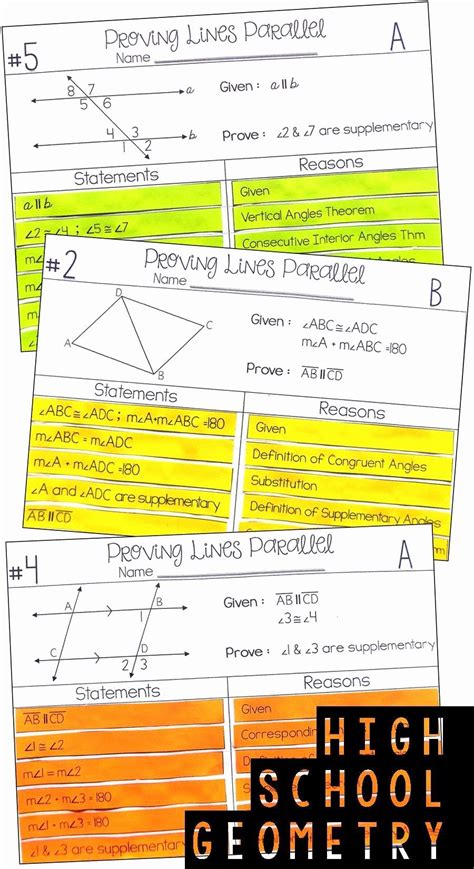 #5
Proving Lines Parallel
A
Name
8 7
5 6
a
4 3
1 2
b
Given : a||b
Prove : ∠2 & ∠7 are supplementary
Statements
Reasons
a||b
Given
∠2 ≅ ∠4 ; ∠5 ≅ ∠7
Vertical Angles Theorem
m∠
Consecutive Interior Angles Thm
m∠
m
∠
#2
Proving Lines Parallel
B
Name
D
C
A
B
Given : ∠ABC ≅ ∠ADC
m∠A + m∠ABC = 180
Prove : AB || CD
Statements
Reasons
∠ABC ≅ ∠ADC ; m∠A+m∠ABC =180
Given
m∠ABC = m∠ADC
Definition of Congruent Angles
m∠A + m∠ADC =180
Substitution
∠A and ∠ADC are supplementary
Definition of Supplementary Angles
AB || CD
em
#4
Proving Lines Parallel
A
Name
A
B
1
C
D
2 3
Given : AB || CD
∠3 ≅ ∠4
Prove : ∠1 & ∠3 are supplementary
Statements
Reasons
AB || CD
Given
∠1 ≅ ∠2
m∠1 = m∠2
m∠2 + m∠3 = 180
m∠1 + m∠3 = 180
∠1 & ∠3 are supplementary
HIGH
SCHOOL
GEOMETRY